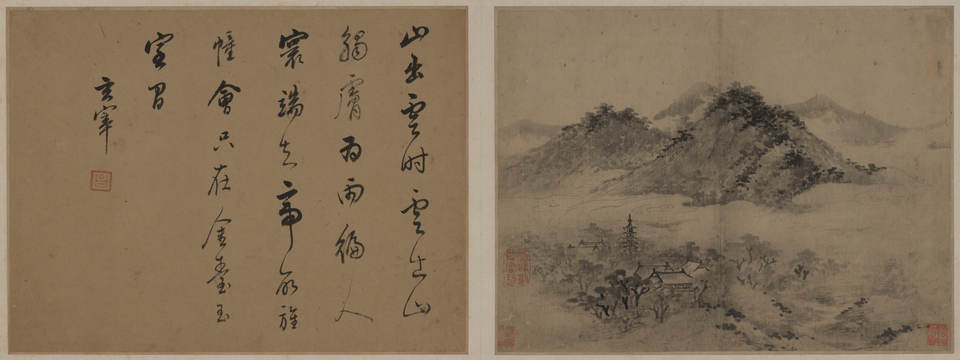 山出雲时雲出山
觸膚為雨徧人
寰端知帝所旌
幢會只在金臺玉
室間
玄宰